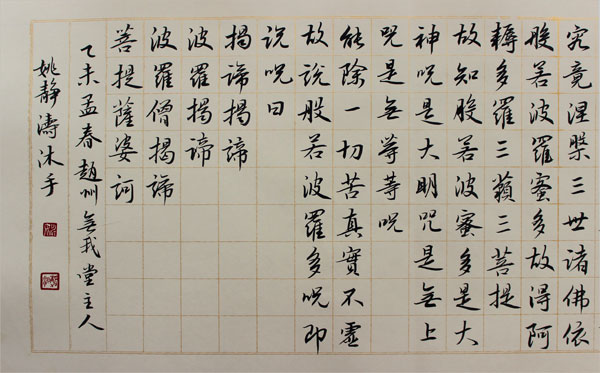 究竟涅槃三世諸佛依
般若波羅蜜多故得阿
耨多羅三藐三菩提
故知般若波蜜多是大
神呪是大明呪是無上
呪是無等等呪
能除一切苦真實不虛
故說般若波羅多呪即
說呪曰
揭諦揭諦
波羅揭諦
波羅僧揭諦
菩提薩婆訶
乙未孟春趙州無我堂主人
姚靜濤沐手